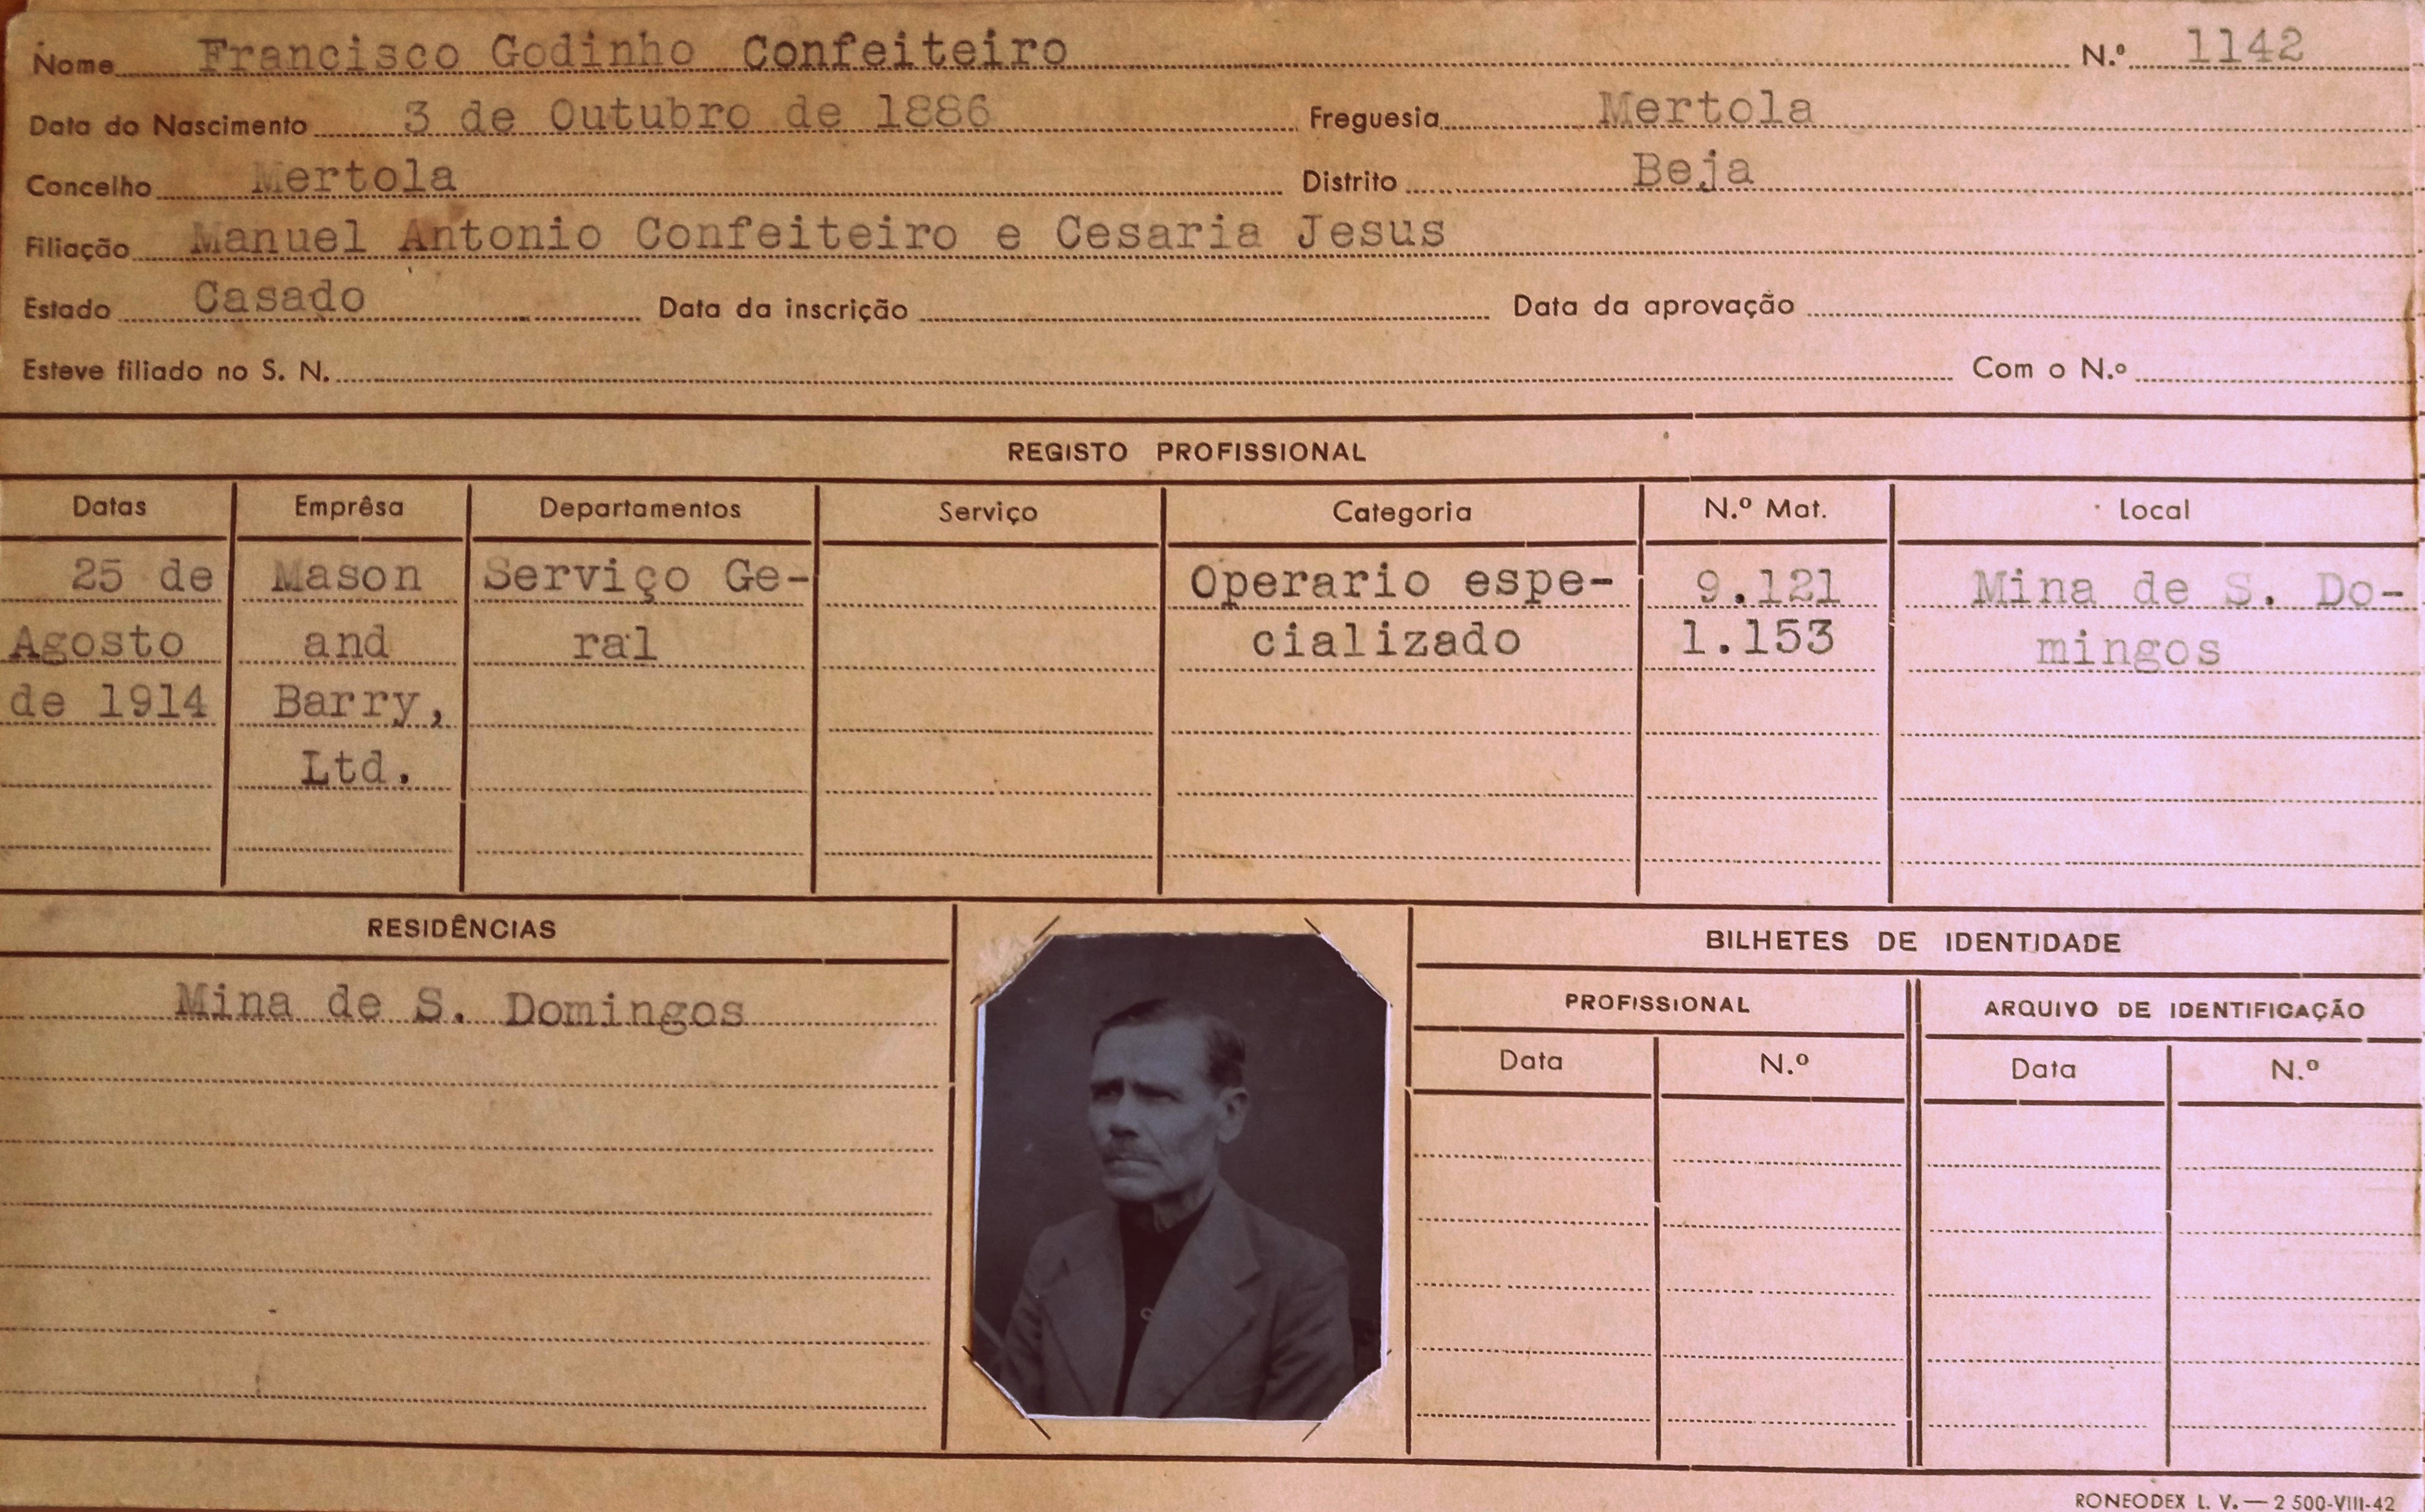 Nome Francisco Godinho Confeiteiro N.º 1142
Data do Nascimento 3 de Outubro de 1886 Freguesia Mertola
Concelho Mertola Distrito Beja
Filiação Manuel Antonio Confeiteiro e Cesaria Jesus
Estado Casado Data da inscrição Data da aprovação
Esteve filiado no S. N. Com o N.º
REGISTO PROFISSIONAL
Datas Emprêsa Departamentos Serviço Categoria N.º Mat. Local
25 de Mason Serviço Ge- Operario espe- 9.121 Mina de S. Do-
Agosto and ral cializado 1.153 mingos
de 1914 Barry,
Ltd.
RESIDÊNCIAS BILHETES DE IDENTIDADE
Mina de S. Domingos PROFISSIONAL ARQUIVO DE IDENTIFICAÇÃO
Data N.º Data N.º
RONEODEX L. V. — 2 500-VIII-42